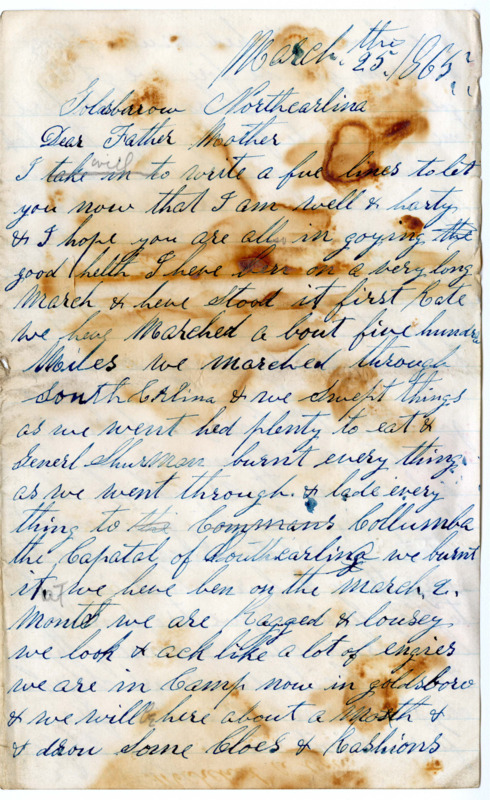 March the 25. 1865
Goldsbarrow Northcarlina
Dear Father Moother
I take in to write a fue lines to let
will
you now that I am well & harty
& I hope you are all in goying the
good helth I heve ben on a very long
March & heve stood it first Rate
we heve Marched a bout five hundra
Moiles we marched through
South Carlina & we swept things
as we went hed plenty to eat &
Generl Shurman burnt every thing
as we went through. & lade every
thing to Commans Collumba
the Capatal of Southcarlina we burnt
it. we heve ben on the March. 2.
Month we are Ragged & lousey
we look & ack like a lot of
we are in Camp now in goldsboro
& we will here about a Month &
& drou Some Cloes & Rashions